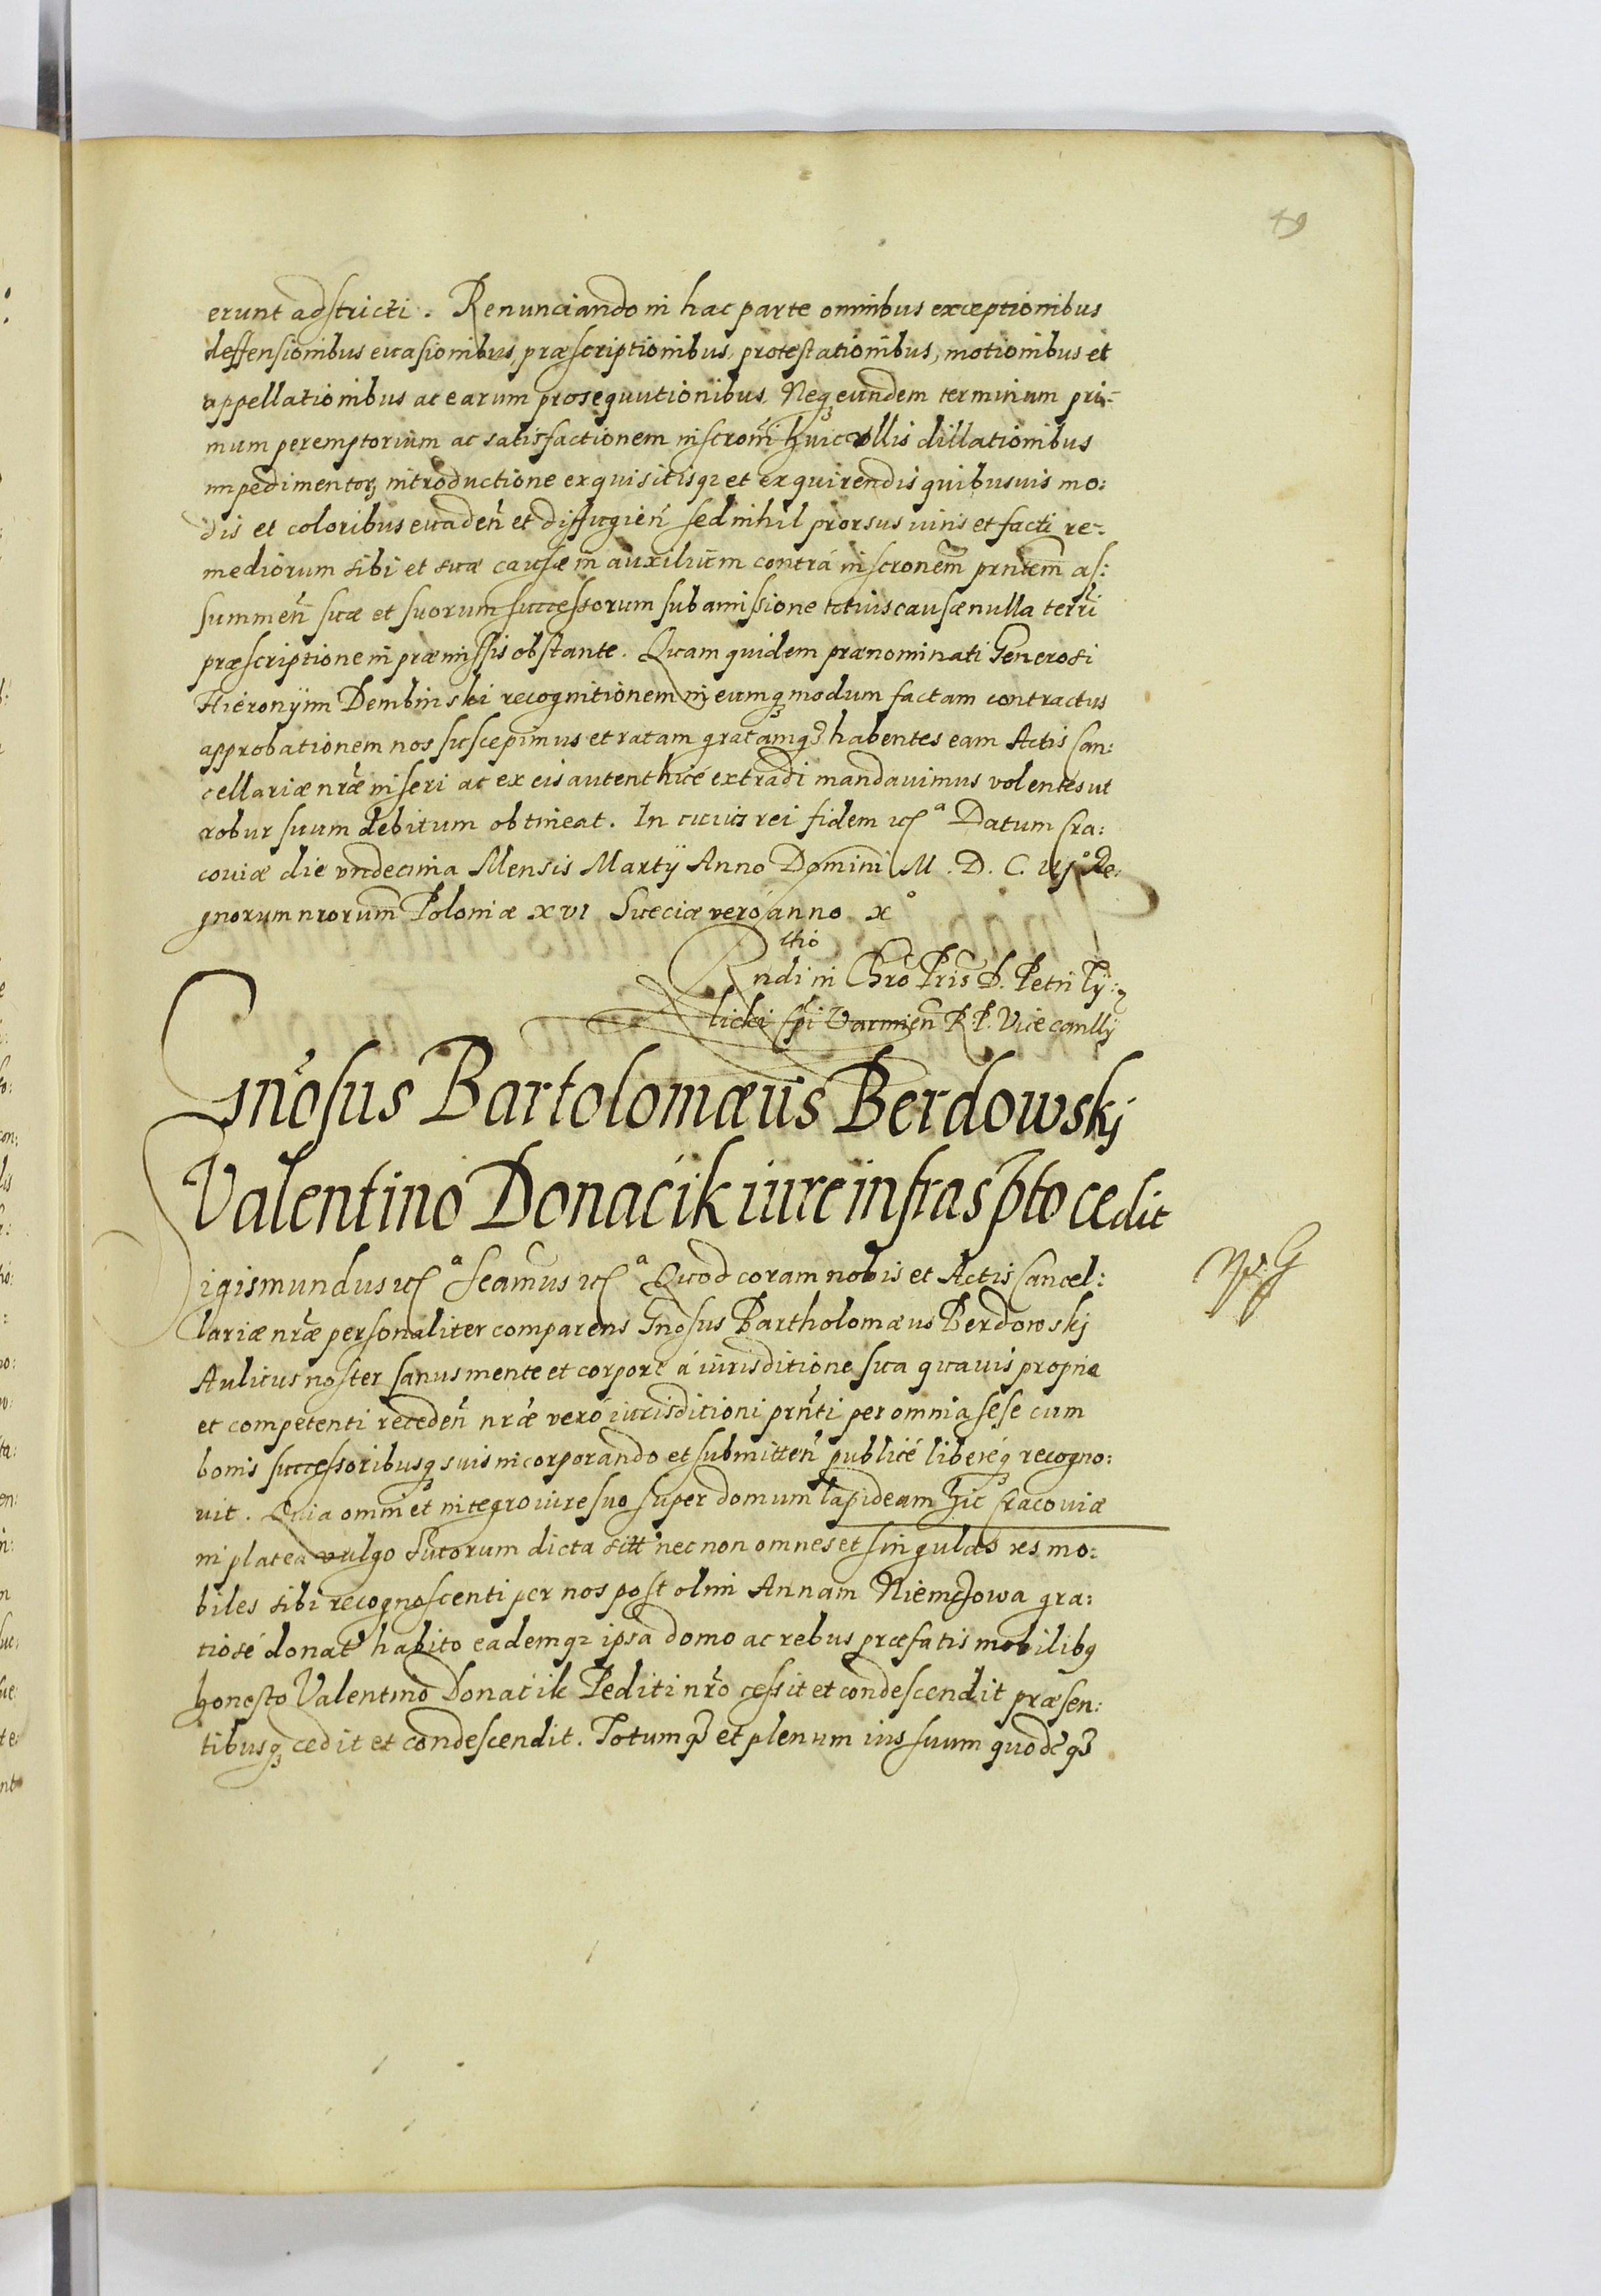 49
erunt adstricti. Renunciando in hac parte omnibus exceptionibus
deffensionibus euasionibus, præscriptionibus, protestationibus, motionibus et
appellationibus ac earum prosequutionibus. Neqꝫ eundem terminum pri=
mum peremptorium ac satisfactionem inscrōni huic vllis dillationibus
impedimentorꝫ introductione exquisitisqꝫ et exquirendis quibusuis mo:
dis et coloribus euadeñ et diffugieñ sed nihil prorsus iuris et facti re=
mediorum sibi et suæ causæ in auxilium contrá inscronem̃ prntem̃ as:
summeñ suæ et suorum successorum sub amissione totius causæ nulla terri
præscriptione in præmissis obstante. Quam quidem prænominati Generosi
Hieronÿmi Dembinski recognitionem in eumqꝫ modum factam contractus
approbationem nos suscepimus et ratam gratamqꝫ habentes eam Actis Can:
cellariæ nr̃æ inseri ac ex eis autenthicé extradi mandauimus volentes ut
robur suum debitum obtineat. In cuius rei fidem etcª Datum Cra:
couiæ die vndecima Mensis Martÿ Anno Domini M. D. C. iijº Re:
gnorum nrorum̃ Poloniæ xvi Sueciæ veró anno xº
Rltio
Rndi in Chrō Pris̃ D. Petri Tÿ:
licki Epĩ Varmieñ R P. Vicecanllÿ
Gnõsus Bartolomæus Berdowskj
Valentino Donacik iure infrasp̃to cedit
Sigismundus etcª Feamus etcª Quod coram nobis et Actis Cancel:
lariæ nr̃æ personaliter comparens Gnõsus Bartholomæus Berdowskj
Aulicus noster sanus mente et corpore á iurisditione sua quauis propria
et competenti recedeñ nr̃æ veró iurisditioni prñti per omnia sese cum
bonis successoribusqꝫ suis incorporando et submitteñ publicé libereqꝫ recogno:
uit. Quia omni et integro iure suo super domum lapideam hic Cracouiæ
in platea vulgo Sutorum dicta sitt̃ nec non omnes et singulas res mo:
biles sibi recognoscenti per nos post olim Annam Niemczowa gra:
tiosé donat̃ habito eademqꝫ ipsa domo ac rebus præfatis mobilibꝰ
honesto Valentino Donacik Pediti nr̃o cessit et condescendit præsen:
tibusqꝫ cedit et condescendit. Totumqꝫ et plenum ius suum quodcqꝫ